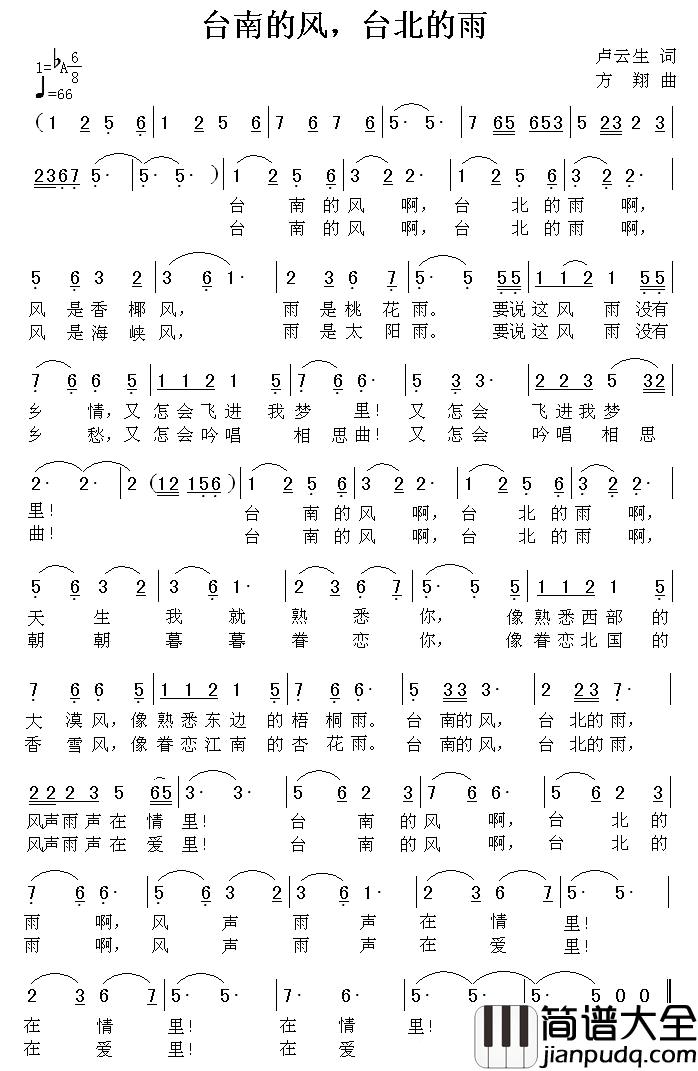 台南的风，台北的雨
1=♭A 6/8
♩=66
卢云生 词
方 翔 曲
(1 2 5 6 | 1 2 5 6 | 7 6 7 6 | 5· 5· | 7 65 653 | 5 23 2 3 |
2367 5· | 5· 5· ) | 1 2 5 6 | 3 2 2· | 1 2 5 6 | 3 2 2· |
台 南 的 风 啊， 台 北 的 雨 啊，
台 南 的 风 啊， 台 北 的 雨 啊，
5 6 3 2 | 3 6 1· | 2 3 6 7 | 5· 5 55 | 1 1 2 1 55 |
风 是 香 椰 风， 雨 是 桃 花 雨。 要说 这 风 雨 没有
风 是 海 峡 风， 雨 是 太 阳 雨。 要说 这 风 雨 没有
7 6 6 5 | 1 1 2 1 5 | 3 6 6· | 5 3 3· | 2 2 3 5 32 |
乡 情，又 怎会飞进 我 梦 里！ 又 怎会 飞进我梦
乡 愁，又 怎会吟唱 相 思曲！ 又 怎会 吟唱 相思
2· 2· | 2 (12 156) | 1 2 5 6 | 3 2 2· | 1 2 5 6 | 3 2 2· |
里！ 台 南 的 风 啊， 台 北 的 雨 啊，
曲！ 台 南 的 风 啊， 台 北 的 雨 啊，
5 6 3 2 | 3 2 1· | 2 3 6 7 | 5· 5· | 1 1 2 1 5 |
天 生 我 就 熟 悉 你， 像 熟悉西部 的
朝 朝 暮 暮 眷 恋 你， 像 眷恋北国 的
7 6 6 5 | 1 1 2 1 5 | 7 6 6· | 5 33 3· | 2 23 2· |
大 漠风，像 熟悉东边 的梧 桐雨。 台 南的风， 台 北的雨，
香 雪风，像 眷恋江南 的杏 花雨。 台 南的风， 台 北的雨，
2 2 2 3 5 65 | 3· 3· | 5 6 2 2 | 7 6 6· | 5 6 3 2 |
风声雨声在 情 里！ 台 南 的 风 啊， 台 北 的
风声雨声在 爱 里！ 台 南 的 风 啊， 台 北 的
7 6 6· | 5 6 3 2 | 3 6 1· | 2 3 6 7 | 5· 5· |
雨 啊， 风 声 雨 声 在 情 里！
雨 啊， 风 声 雨 声 在 爱 里！
2 3 6 7 | 5· 5· | 2 3 6 7 | 5· 5· | 5· 5· | 5 0 0 ‖
在 情 里！ 在 情 里！
在 爱 里！ 在 爱
简谱大全
jianpudq.com